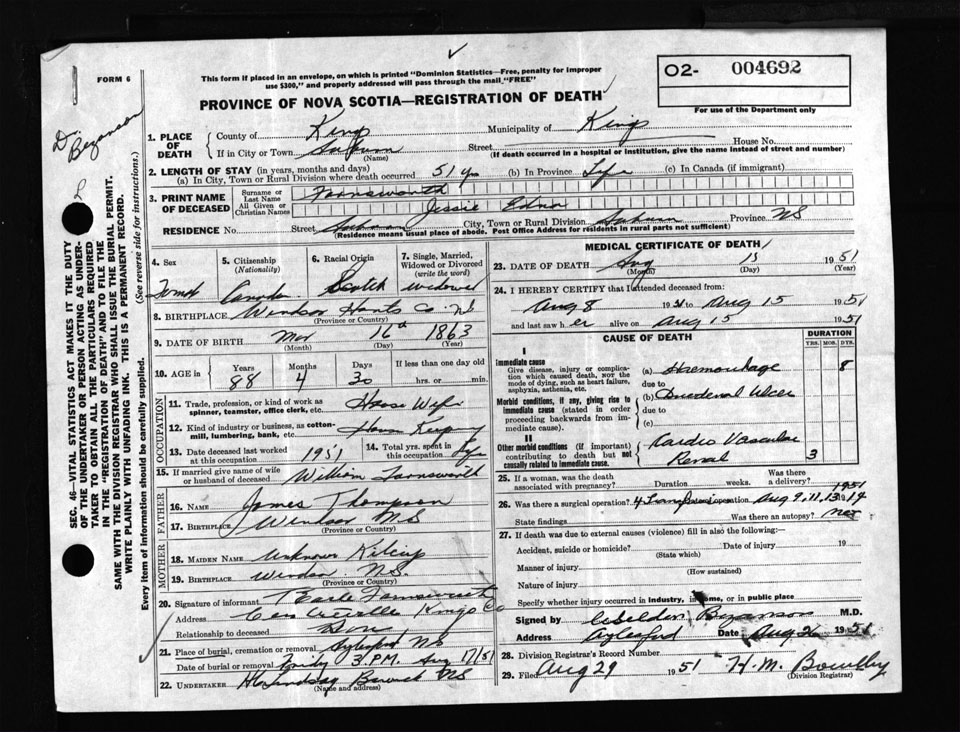 FORM 6
This form if placed in an envelope, on which is printed "Dominion Statistics—Free, penalty for improper
use $300," and properly addressed will pass through the mail "FREE"
PROVINCE OF NOVA SCOTIA—REGISTRATION OF DEATH
O2- 004692
For use of the Department only
Dr. Bezanson
SEC. 46—VITAL STATISTICS ACT MAKES IT THE DUTY
OF THE UNDERTAKER OR PERSON ACTING AS UNDER-
TAKER TO OBTAIN ALL THE PARTICULARS REQUIRED
IN THE "REGISTRATION OF DEATH" AND TO FILE THE
SAME WITH THE DIVISION REGISTRAR WHO SHALL ISSUE THE BURIAL PERMIT.
WRITE PLAINLY WITH UNFADING INK. THIS IS A PERMANENT RECORD.
Every item of information should be carefully supplied. (See reverse side for instructions.)
1. PLACE OF DEATH
County of Kings Municipality of Kings
If in City or Town Street House No.
(Name) (If death occurred in a hospital or institution, give the name instead of street and number)
2. LENGTH OF STAY (in years, months and days)
(a) In City, Town or Rural Division where death occurred 51 yrs (b) In Province Life (c) In Canada (if immigrant)
3. PRINT NAME OF DECEASED
Surname or Last Name Farnsworth
All Given or Christian Names Jessie Edna
RESIDENCE No. Street City, Town or Rural Division Province NS
(Residence means usual place of abode. Post Office Address for residents in rural parts not sufficient)
4. Sex
5. Citizenship (Nationality)
6. Racial Origin
7. Single, Married, Widowed or Divorced (write the word)
Canadian Scotch widowed
8. BIRTHPLACE Windsor Hants Co. NS
(Province or Country)
9. DATE OF BIRTH Mar 16th 1863
(Month) (Day) (Year)
10. AGE in Years Months Days If less than one day old
88 4 30 hrs. or min.
OCCUPATION
11. Trade, profession, or kind of work as
spinner, teamster, office clerk, etc. House Wife
12. Kind of industry or business, as cotton-
mill, lumbering, bank, etc. House Keeping
13. Date deceased last worked at this occupation 1951
14. Total yrs. spent in this occupation Life
15. If married give name of wife
or husband of deceased William Farnsworth
FATHER
16. NAME James Thompson
17. BIRTHPLACE Windsor NS
(Province or Country)
MOTHER
18. MAIDEN NAME Unknown
19. BIRTHPLACE Windsor N.S.
(Province or Country)
20. Signature of informant Earle Farnsworth
Address Kings Co
Relationship to deceased Son
21. Place of burial, cremation or removal Aylesford NS
Date of burial or removal Friday 3 P.M. Aug 17/51
22. UNDERTAKER Lindsay Berwick NS
(Name and address)
MEDICAL CERTIFICATE OF DEATH
23. DATE OF DEATH Aug 15 1951
(Month) (Day) (Year)
24. I HEREBY CERTIFY that I attended deceased from:
Aug 8 1951 to Aug 15 1951
and last saw her alive on Aug 15 1951
CAUSE OF DEATH
DURATION
YRS. MOS. DYS.
I
Immediate cause
Give disease, injury or complica-
tion which caused death, not the
mode of dying, such as heart failure,
asphyxia, asthenia, etc.
(a) Haemorrhage 8
due to
Morbid conditions, if any, giving rise to
immediate cause (stated in order
proceeding backwards from im-
mediate cause)
(b) Duodenal Ulcer
due to
(c)
II
Other morbid conditions (if important)
contributing to death but not
causally related to immediate cause.
Cardio Vascular
Renal 3
25. If a woman, was the death
associated with pregnancy? Duration weeks. Was there a delivery?
26. Was there a surgical operation? 4 operation Aug 9, 11, 13, 14 1951
State findings Was there an autopsy? not
27. If death was due to external causes (violence) fill in also the following:—
Accident, suicide or homicide? Date of injury 19
(State which)
Manner of injury
(How sustained)
Nature of injury
Specify whether injury occurred in industry, in home, or in public place
Signed by Bezanson M.D.
Address Aylesford Date Aug 26 1951
28. Division Registrar's Record Number
29. Filed Aug 29 1951 H. M.
(Division Registrar)